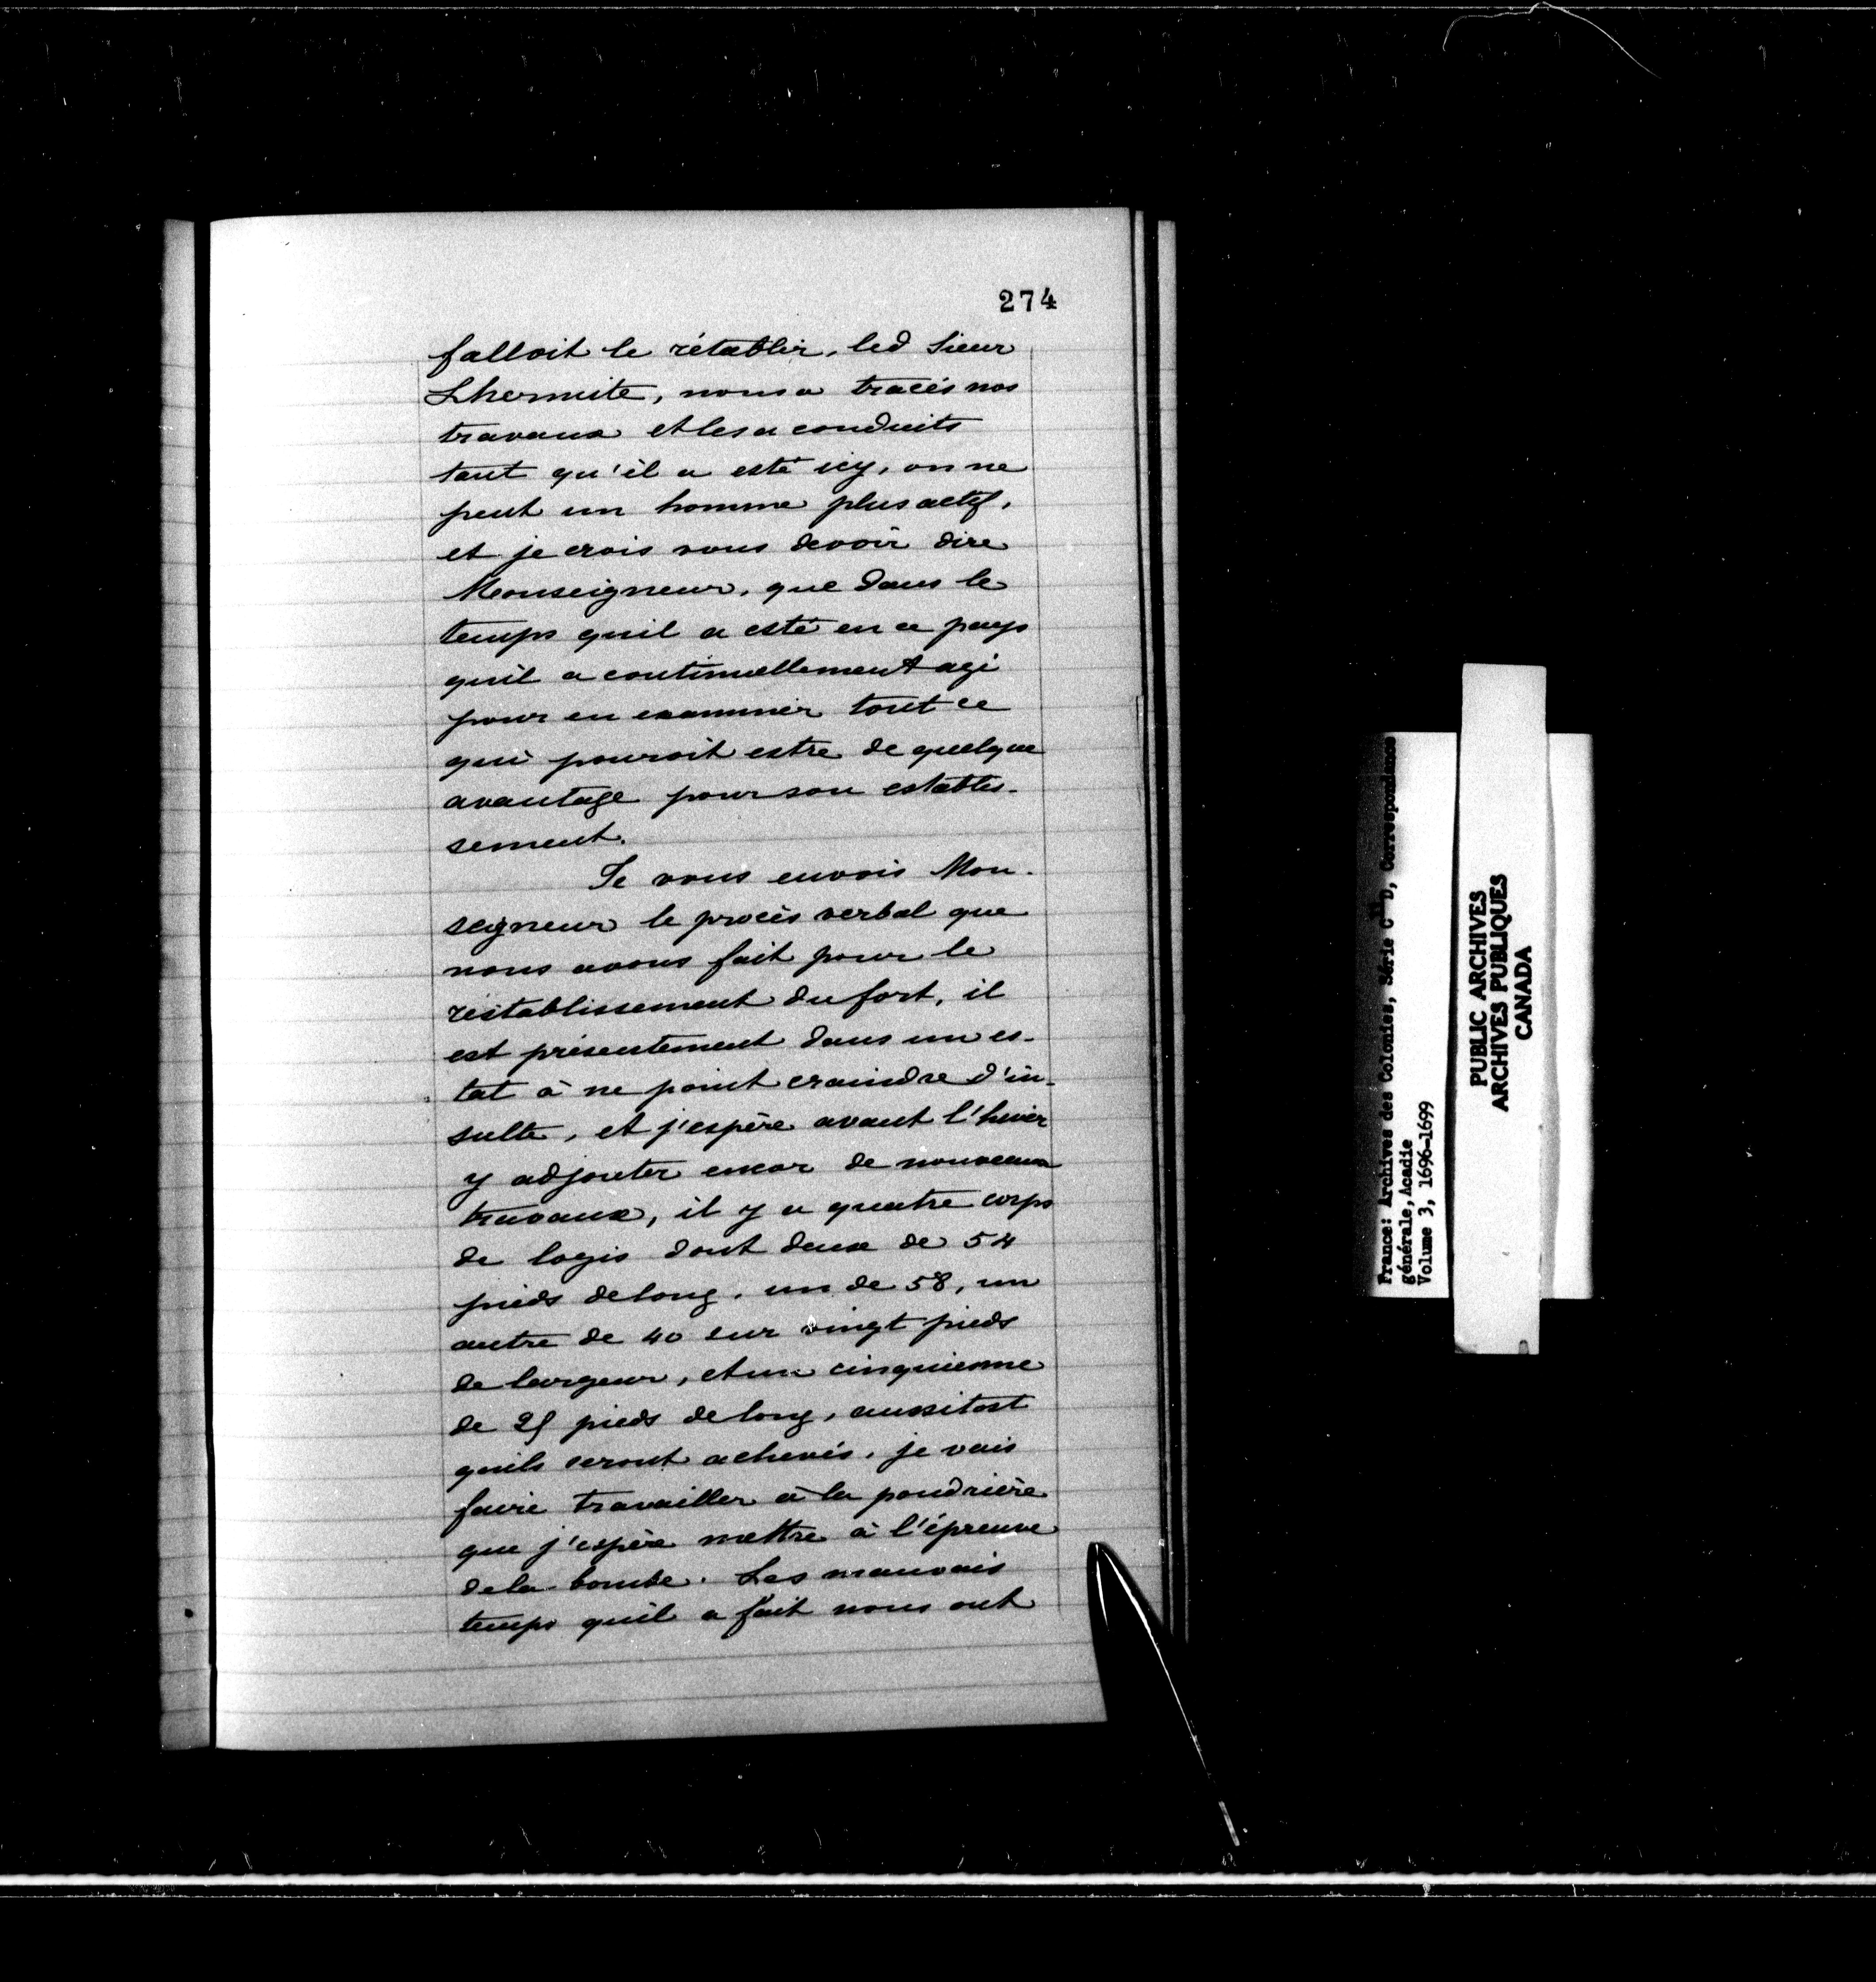 274
falloit le rétablir, led Sieur
Lhermite, nous a tracés nos
travaux et les a conduits
tant qu'il a esté icy, on ne
peut un homme plus actif,
et je crois vous devoir dire
Monseigneur, que dans le
temps quil a esté en ce pays
quil a continuellement agi
pour en examiner tout ce
qui pouroit estre de quelque
avantage pour son establis-
sement.
Je vous envois Mon-
seigneur le procès verbal que
nous avons fait pour le
réstablissement du fort, il
est présentement dans un es-
tat à ne point craindre d'in-
sulte, et j'espère avant l'hiver
y adjouter encor de nouveaux
travaux, il y a quatre corps
de logis dont deux de 54
pieds de long, un de 58, un
autre de 40 sur vingt pieds
de largeur, et un cinquieme
de pieds de long, aussitost
quils seront achevés, je vais
faire travailler à la poudrière
que j'espère mettre à l'épreuve
de la bombe. Les mauvais
temps quil a fait nous ont
France: Archives des Colonies, Série C11D, Correspondance
générale, Acadie
Volume 3, 1696-1699
PUBLIC ARCHIVES
ARCHIVES PUBLIQUES
CANADA